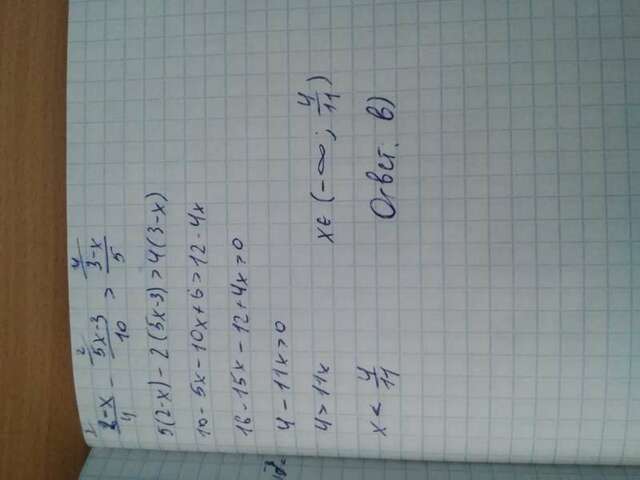 2 2 4
2-x/4 - 5x-3/10 > 3-x/5
5(2-x) - 2(5x-3) > 4(3-x)
10 - 5x - 10x + 6 > 12 - 4x
16 - 15x - 12 + 4x > 0
4 - 11x > 0
4 > 11x
x ∈ (-∞; 4/11)
x < 4/11
Ответ. в)